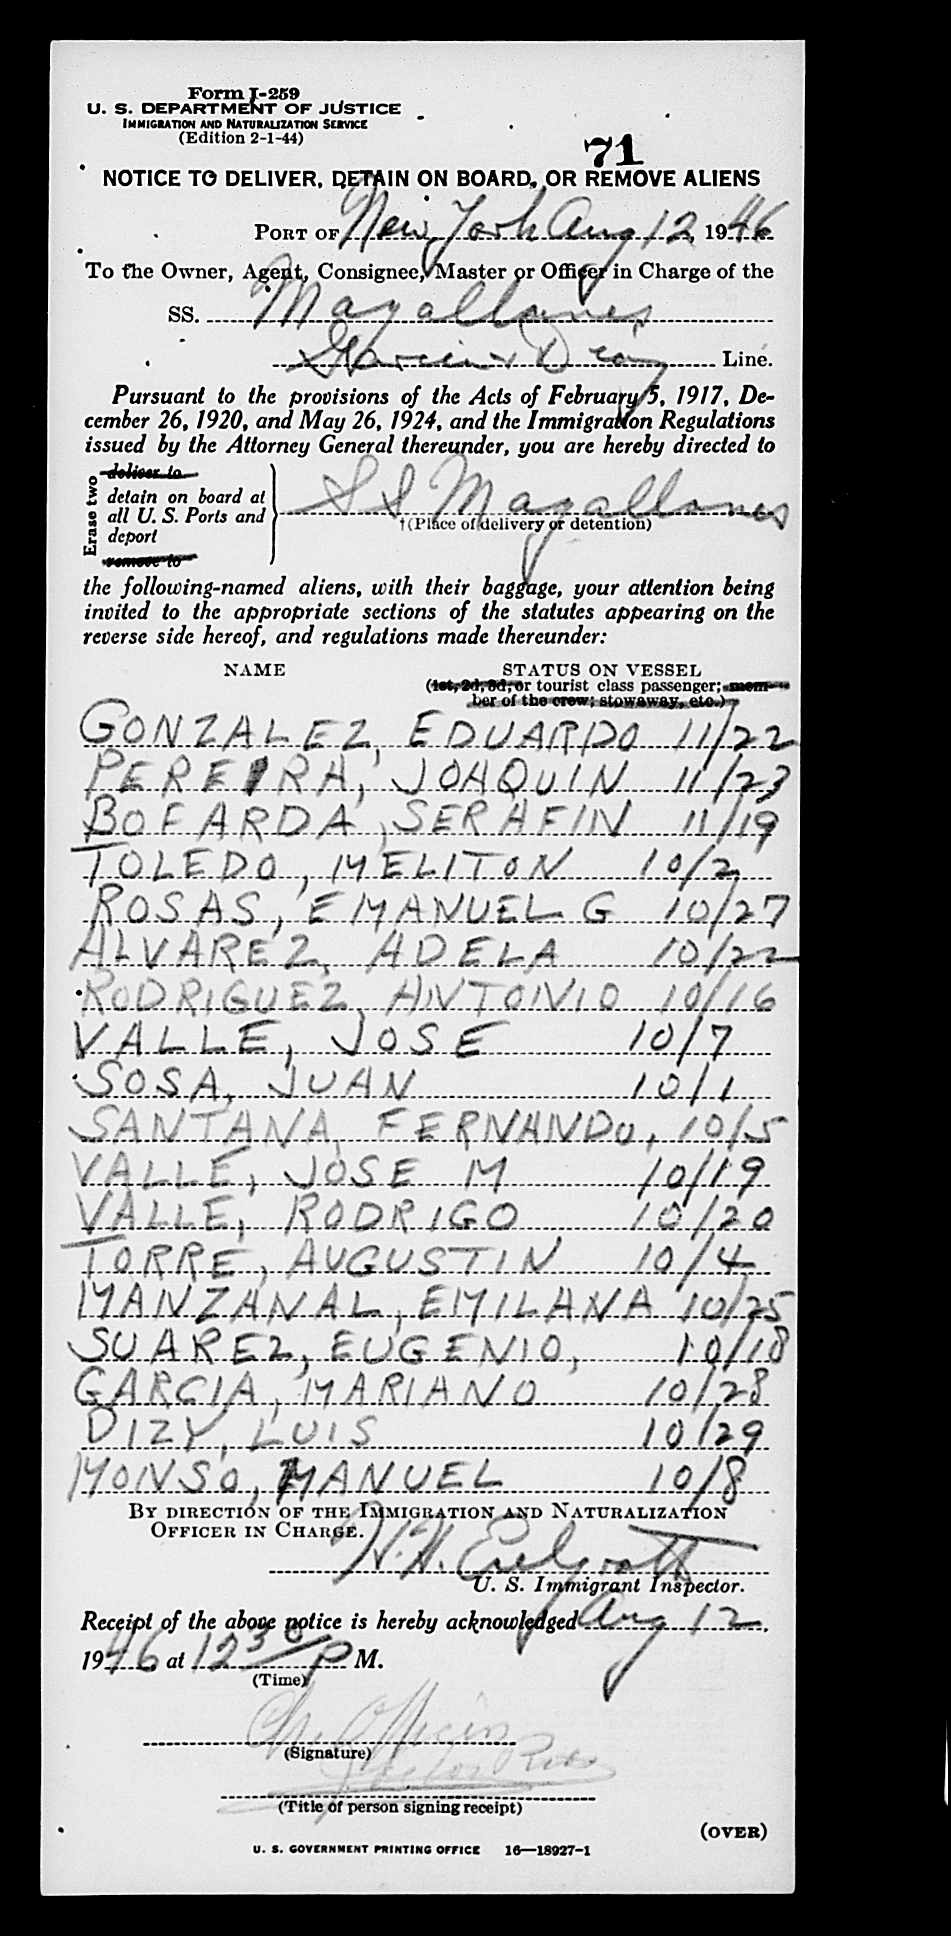 Form I-259
U. S. DEPARTMENT OF JUSTICE
IMMIGRATION AND NATURALIZATION SERVICE
(Edition 2-1-44)
71
NOTICE TO DELIVER, DETAIN ON BOARD, OR REMOVE ALIENS
PORT OF New York Aug 12 1946
To the Owner, Agent, Consignee, Master or Officer in Charge of the
SS. Magallanes
Garcia & Diaz Line.
Pursuant to the provisions of the Acts of February 5, 1917, De-
cember 26, 1920, and May 26, 1924, and the Immigration Regulations
issued by the Attorney General thereunder, you are hereby directed to
Erase two
deliver to
detain on board at
all U. S. Ports and
deport
remove to
SS Magallanes
†(Place of delivery or detention)
the following-named aliens, with their baggage, your attention being
invited to the appropriate sections of the statutes appearing on the
reverse side hereof, and regulations made thereunder:
NAME STATUS ON VESSEL
(1st, 2d, 3d, or tourist class passenger; mem-
ber of the crew; stowaway, etc.)
GONZALEZ, EDUARDO 11/22
PEREIRA, JOAQUIN 11/23
BOFARDA, SERAFIN 11/19
TOLEDO, MELITON 10/2
ROSAS, EMANUEL G 10/27
ALVAREZ, ADELA 10/22
RODRIGUEZ, ANTONIO 10/16
VALLE, JOSE 10/7
SOSA, JUAN 10/1
SANTANA, FERNANDO, 10/5
VALLE, JOSE M 10/19
VALLE, RODRIGO 10/20
TORRE, AUGUSTIN 10/4
MANZANAL, EMILANA 10/25
SUAREZ, EUGENIO, 10/18
GARCIA, MARIANO 10/28
DIZY, LUIS 10/29
MONSO, MANUEL 10/8
BY DIRECTION OF THE IMMIGRATION AND NATURALIZATION
OFFICER IN CHARGE.
H. H.
U. S. Immigrant Inspector.
Receipt of the above notice is hereby acknowledged Aug 12,
1946 at 12 30/P M.
(Time)
Ch. Officer
(Signature)
(Title of person signing receipt)
(OVER)
U. S. GOVERNMENT PRINTING OFFICE 16—18927-1